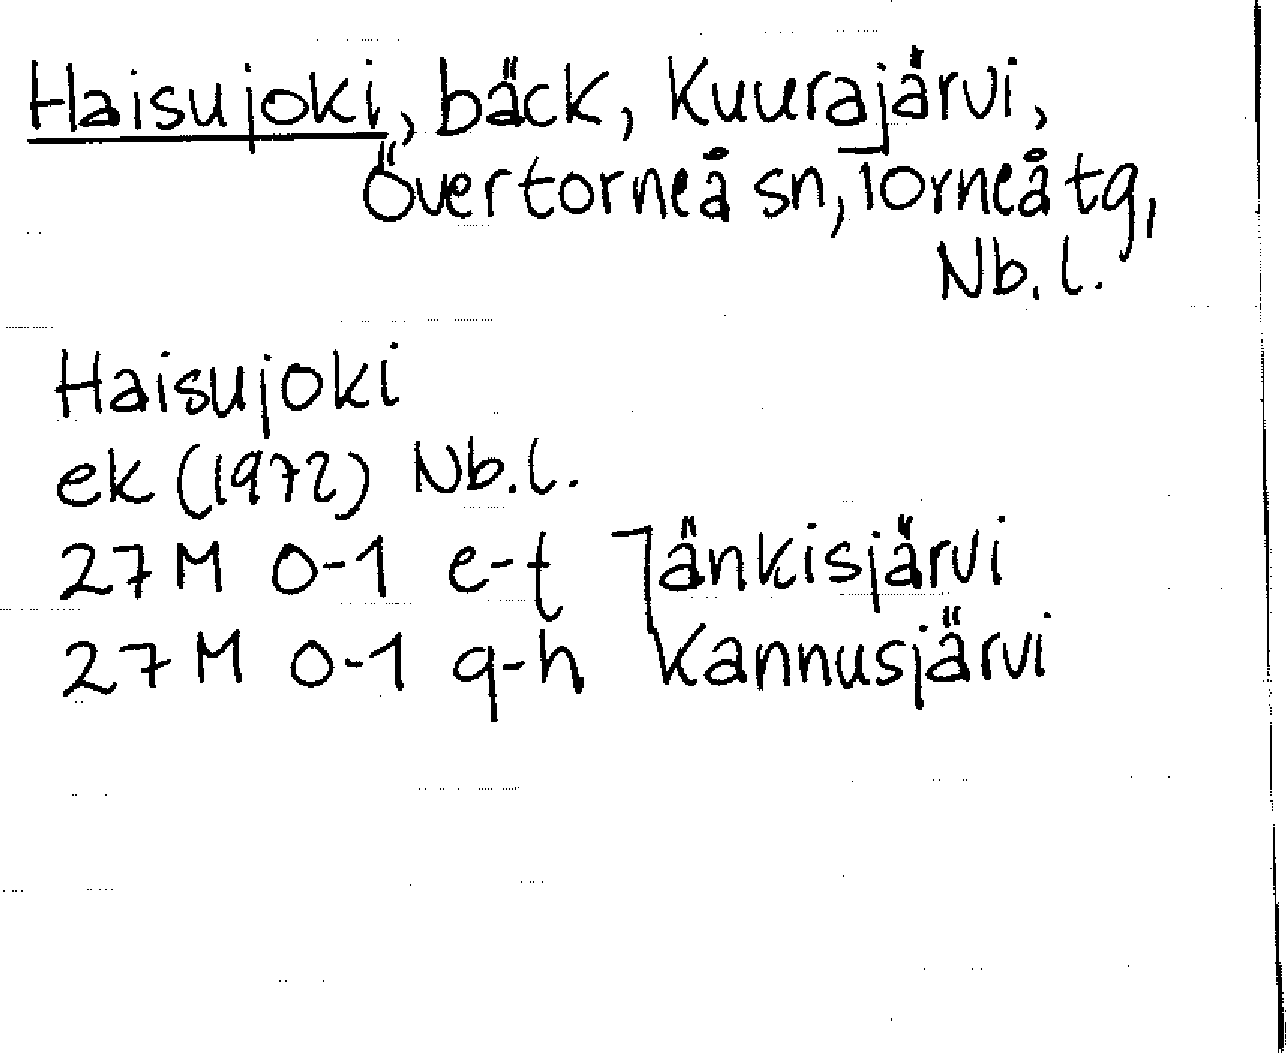 Haisujoki, bäck, Kuurajärvi,
Övertorneå sn, Torneå tg,
Nb. l.
Haisujoki
ek (1972) Nb. l.
27 M 0-1 e-f Jänkisjärvi
27 M 0-1 g-h Kannusjärvi